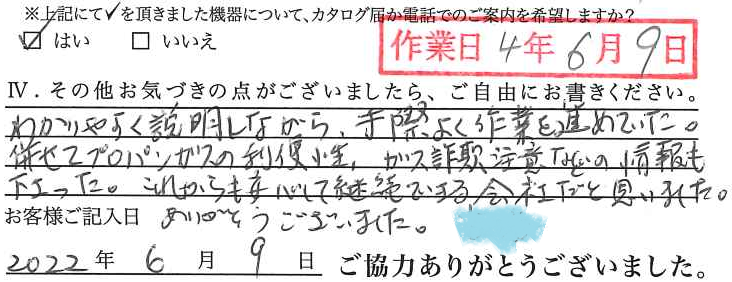 ※上記にて✓を頂きました機器について、カタログ届か電話でのご案内を希望しますか?
☑ はい ☐ いいえ
作業日 4年6月9日
Ⅳ．その他お気づきの点がございましたら、ご自由にお書きください。
わかりやすく説明しながら、手際よく作業を進めていた。
併せてプロパンガスの利便性、ガス詐欺注意などの情報も
下さった。これからも安心して継続できる会社だと思いました。
お客様ご記入日 ありがとうございました。
2022年6月9日 ご協力ありがとうございました。